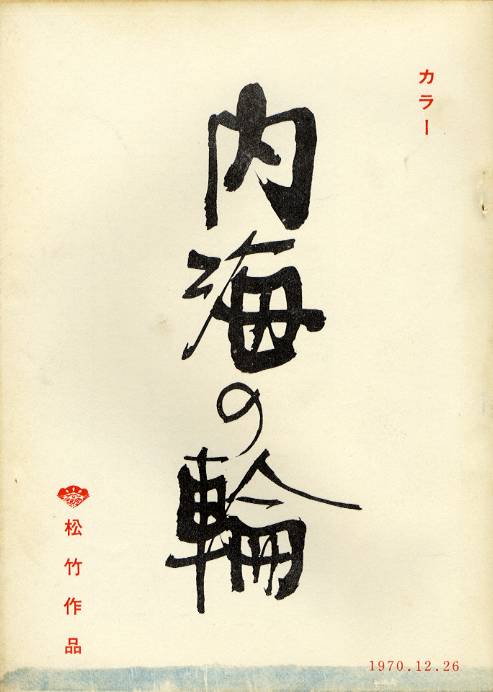 カラー
内海の輪
松竹作品
1970.12.26